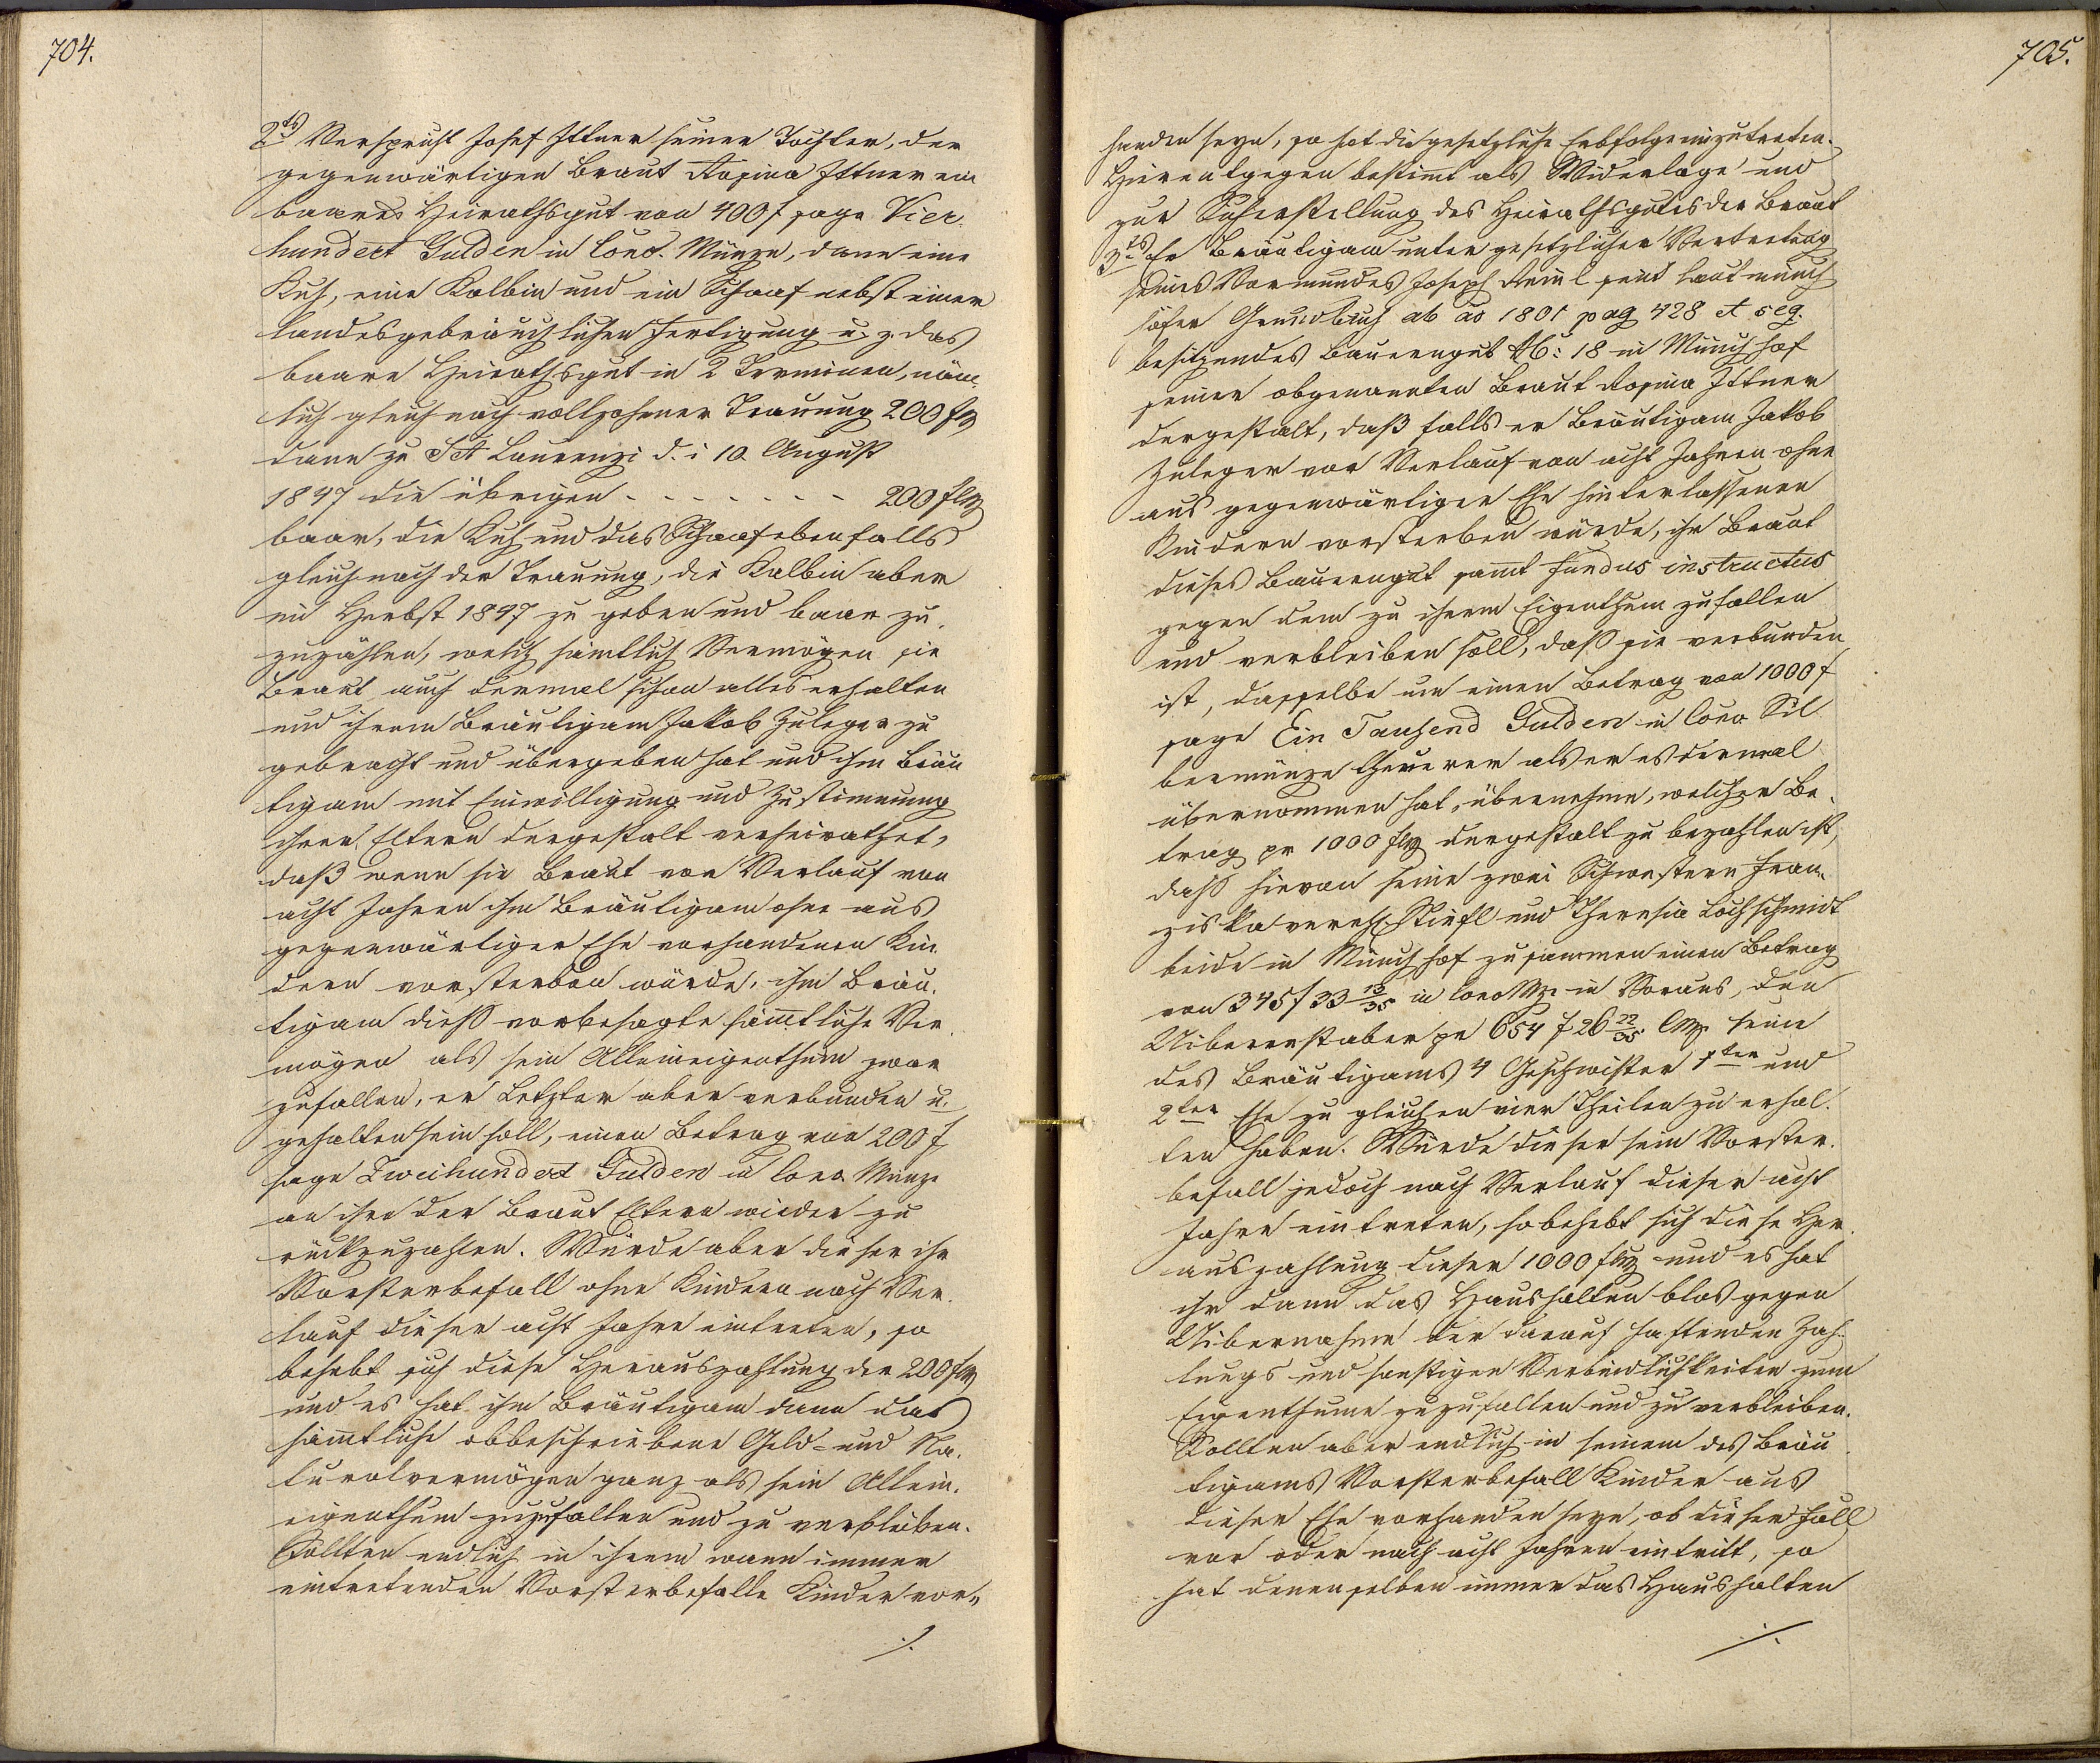 704.
2ts Verspricht Josef Ittner seiner Tochter, der
gegenwärtigen Braut Rosina Ittner ein
baares Heirathsgut von 400 f sage Vier
hundert Gulden in Conv. Münze, dann eine
Kuh, eine Kalbin und ein Schaaf nebst einer
landesgebräuchlichen Fertigung u. z. das
baare Heirathsgut in 2 Terminen, näm
lich gleich nach vollzohener Trauung 200 f
dann zu Skt Laurenzi d. i 10. August
1847 die übrigen - - - - - - - 200 f
baar, die Kuh und das Schaaf ebenfalls
gleich nach der Trauung, die Kalbin aber
im Herbst 1847 zu geben und baar zu
zuzählen, welch sämtlich Vermögen sie
Braut auch dermal schon alles erhalten
und ihrem Bräutigam Jakob Zuleger zu
gebracht und übergeben hat und ihm Bräu
tigam mit Einwilligung und Zustimmung
ihrer Eltern dergestalt verheirathet,
daß wenn sie Braut vor Verlauf von
acht Jahren ihm Bräutigam ohne aus
gegenwärtiger Ehe vorhandenen Kin
dern vorsterben würde, ihm Bräu
tigam dieß vorbesagte sämtliche Ver
mögen als sein Alleineigenthum zwar
zufallen, er Letzter aber verbunden u.
gehalten sein soll, einen Betrag von 200 f
sage Zweihundert Gulden in Conv. Münze
an ihre der Braut Eltern wieder zu
rückzuzahlen. Würde aber dieser ihr
Vorsterbefall ohne Kindern nach Ver
lauf dieser acht Jahre eintreten, so
behebt sich diese Herauszahlung der 200 f
und es hat ihm Bräutigam dann das
sämtliche obbeschriebene Geld- und Na
turalvermögen ganz als sein Allein
eigenthum zuzufallen und zu verbleiben.
Sollten endlich in ihrem wann immer
eintretenden Vorsterbefalle Kinder vor„
./.
705.
handen seyn, so hat die gesetzliche Erbfolge einzutreten.
Hierentgegen bestimt als Widerlage und
zur Sicherstellung des Heirathsgutes der Braut
3ts Er Bräutigam unter gesetzlicher Vertretung
seines Vormundes Joseph sein laut münch
höfer Grundbuch ab ao 1801 pag 428 et seq.
besitzendes Bauerngut No: 18 in Münchhof
seiner obgenannten Braut Rosina Ittner
dergestalt, daß falls er Bräutigam Jakob
Zuleger vor Verlauf von acht Jahren ohne
aus gegenwärtiger Ehe hinterlassenen
Kindern vorsterben würde, ihr Braut
dieses Bauerngut samt fundus instructus
gegen dem zu ihrem Eigenthum zufallen
und verbleiben soll, daß sie verbunden
ist, dasselbe um einen Betrag von 1000 f
sage Ein Tausend Gulden in Conv. Sil
bermünze theuerer als er es dermal
übernommen hat, übernehme, welcher Be
trag pr 1000 f dergestalt zu bezahlen ist,
daß hievon seine zwei Schwestern Fran
ziska vereh. Stiefl und Theresia Lochschmidt
beide in Münchhof zusammen einen Betrag
von 345 f 33 13/35 in Conv Mz. in Voraus, den
Uiberrest aber pr 654 f 26 22/35 CMz. seine
des Bräutigams 4 Geschwister 1ter und
2ter Ehe zu gleichen vier Theilen zu erhal
ten haben. Würde dieser sein Vorster
befall jedoch nach Verlauf dieser acht
Jahre eintreten, so behebt sich diese Her
auszahlung dieser 1000 f und es hat
ihr dann das Haushalten blos gegen
Uibernahme der darauf haftenden Zah
lungs und sonstigen Verbindlichkeiten zum
Eigenthume zuzufallen und zu verbleiben.
Sollten aber endlich in seinem des Bräu
tigams Vorsterbefall Kinder aus
dieser Ehe vorhanden seyn, ob dieser Fall
vor oder nach acht Jahren eintritt, so
hat denenselben immer das Haushalten
./.